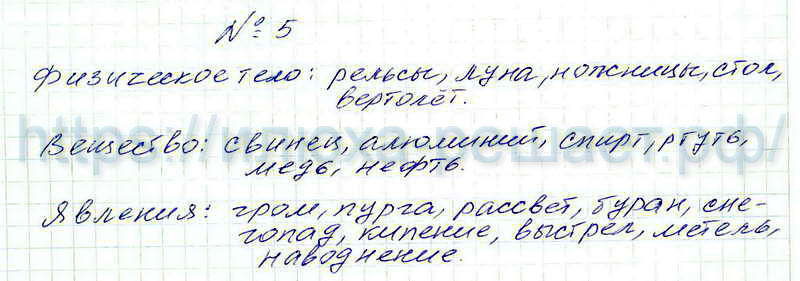 № 5
Физическое тело: рельсы, луна, ножницы, стол,
вертолёт.
Вещество: свинец, алюминий, спирт, ртуть,
медь, нефть.
Явления: гром, пурга, рассвет, буран, сне-
гопад, кипение, выстрел, метель,
наводнение.